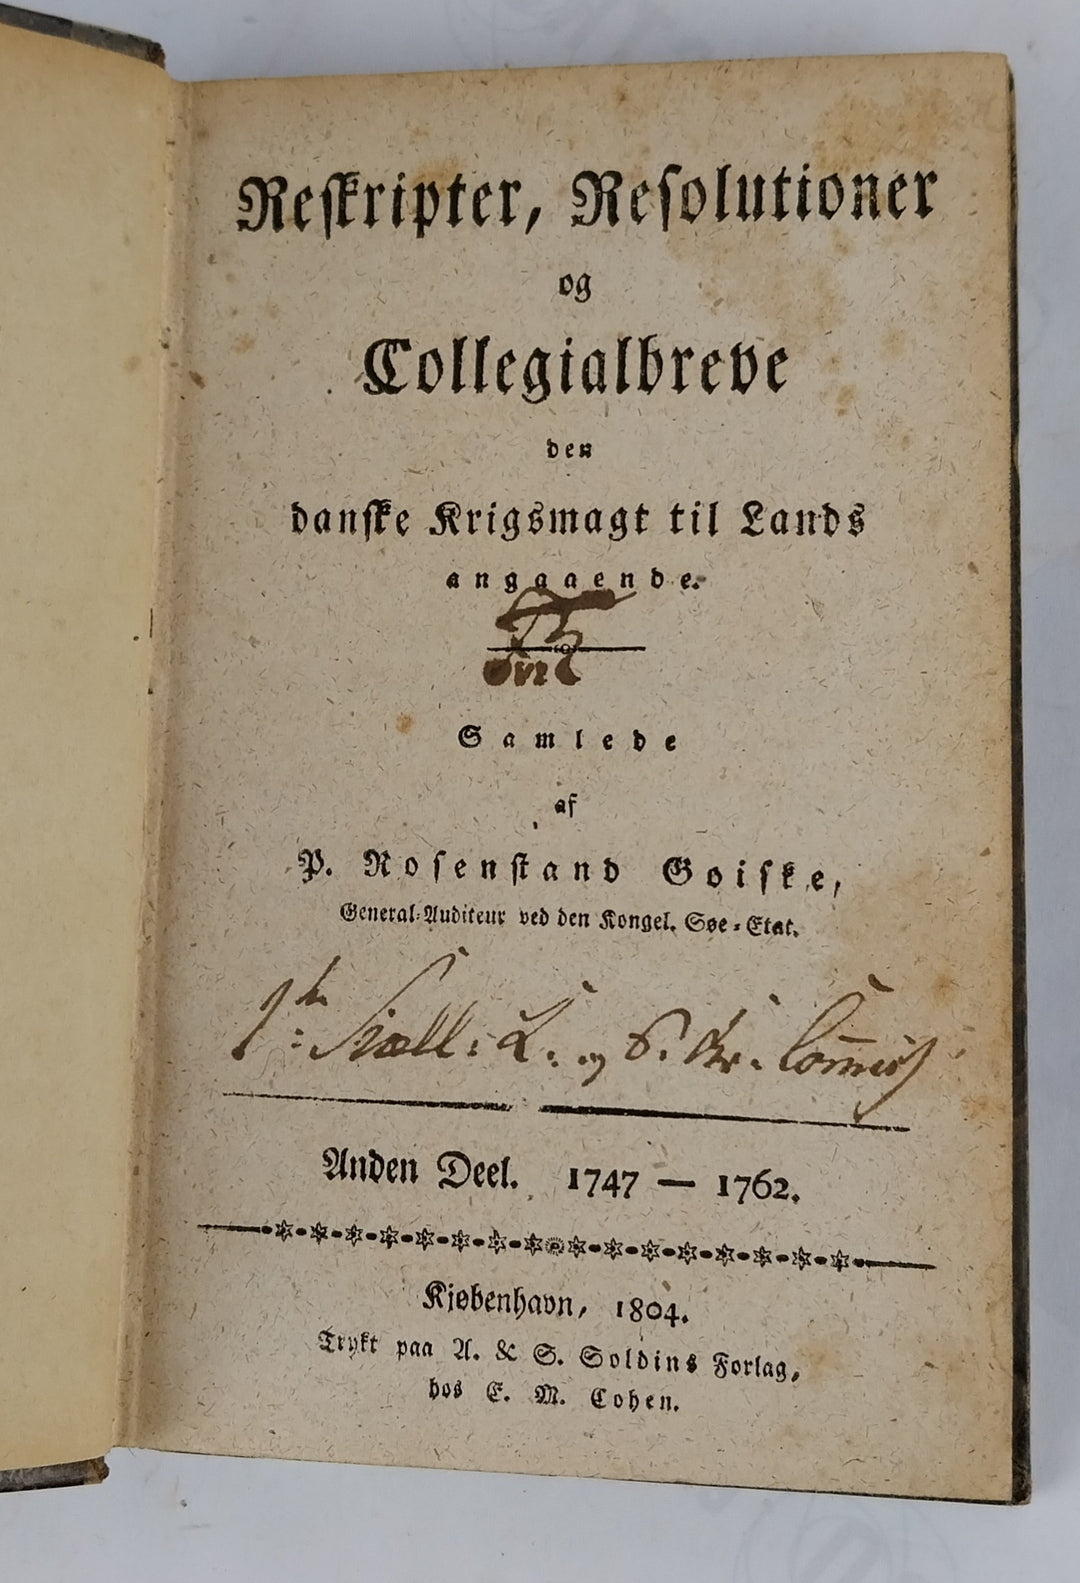 Reskripter, Resolutioner
og
Collegialbreve
den
danske Krigsmagt til Lands
angaaende.
Samlede
af
P. Rosenstand Goiske,
General-Auditeur ved den Kongel. Søe-Etat.
Anden Deel. 1747 — 1762.
Kjøbenhavn, 1804.
Trykt paa A. & S. Soldins Forlag,
hos E. M. Cohen.